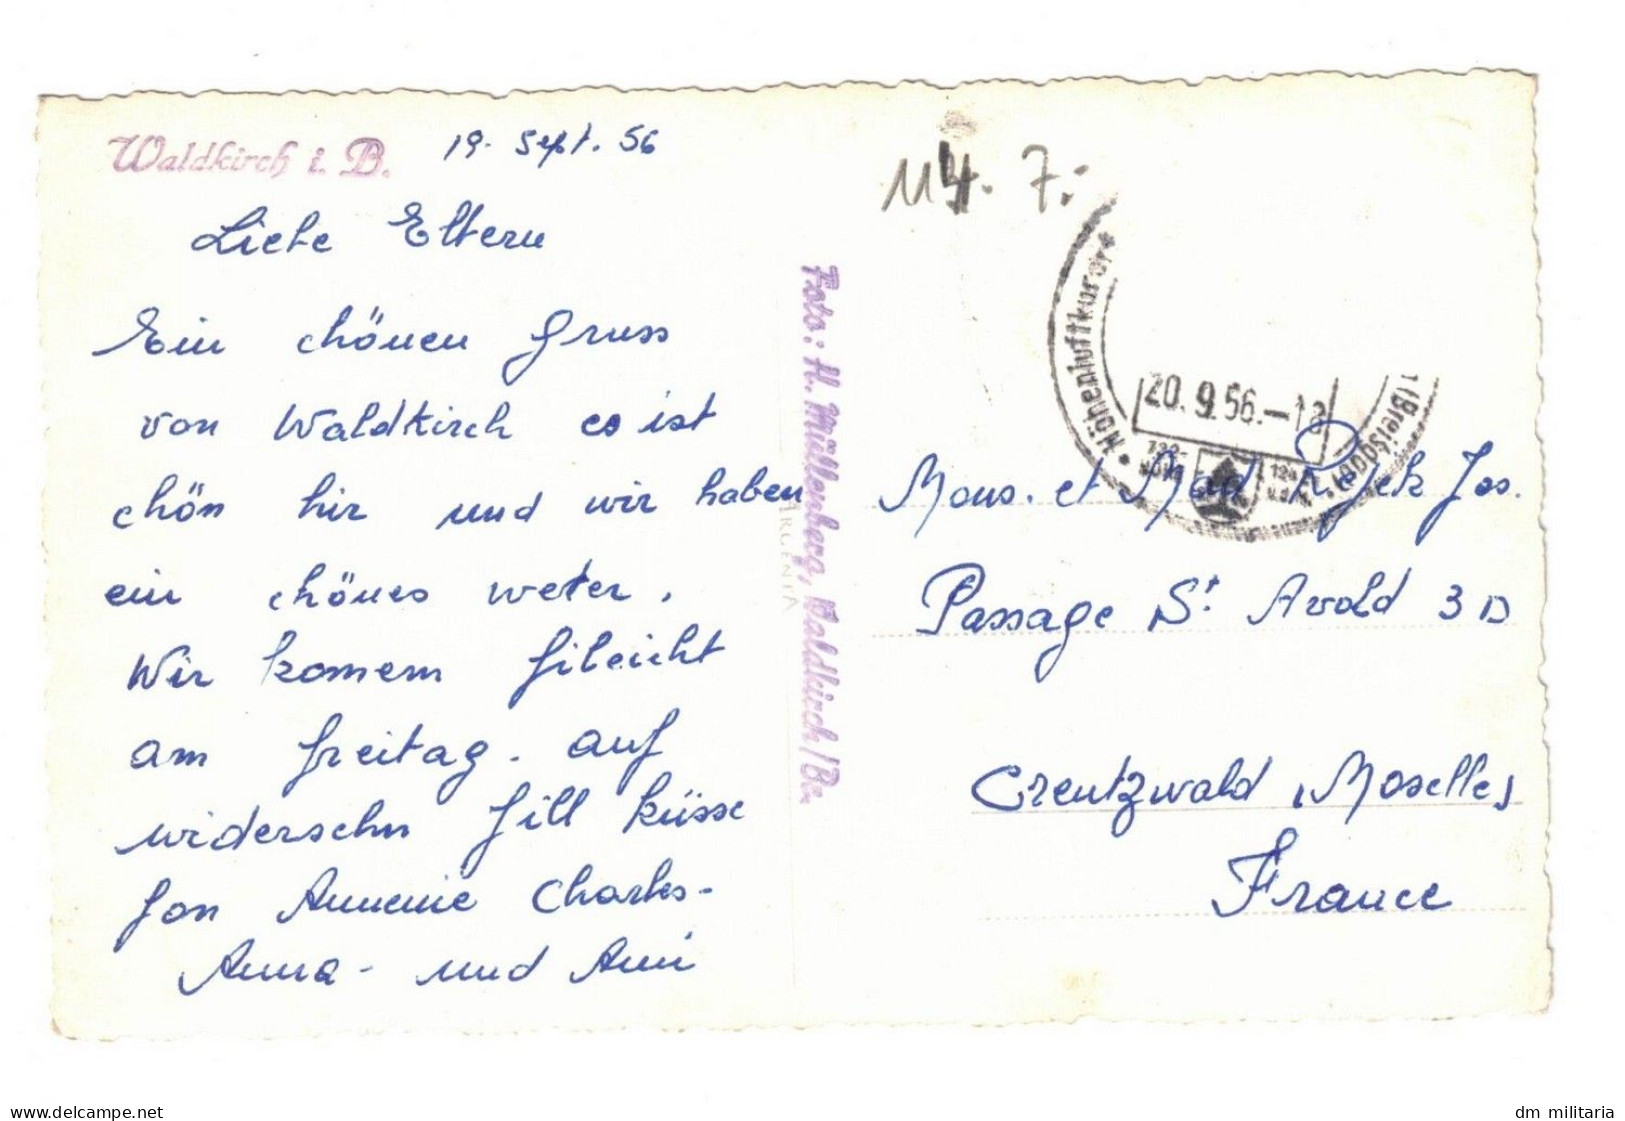 Waldkirch i. B.
19. Sept. 56
Liebe Eltern
Ein chönen Gruss
von Waldkirch es ist
chön hir und wir haben
ein chönes weter.
Wir komem fileicht
am freitag. auf
widersehn fill küsse
fon Annemie Charles-
Anna- und Ani
Foto: H. Müllenberg, Waldkirch/Br.
ARGENTA
114. 7.-
Höhenluftkurort
(Breisgau)
20.9.56.-18
Mons. et Mad Rejek Jos.
Passage St. Avold 3 D
Creutzwald (Moselle)
France
www.delcampe.net
dm militaria